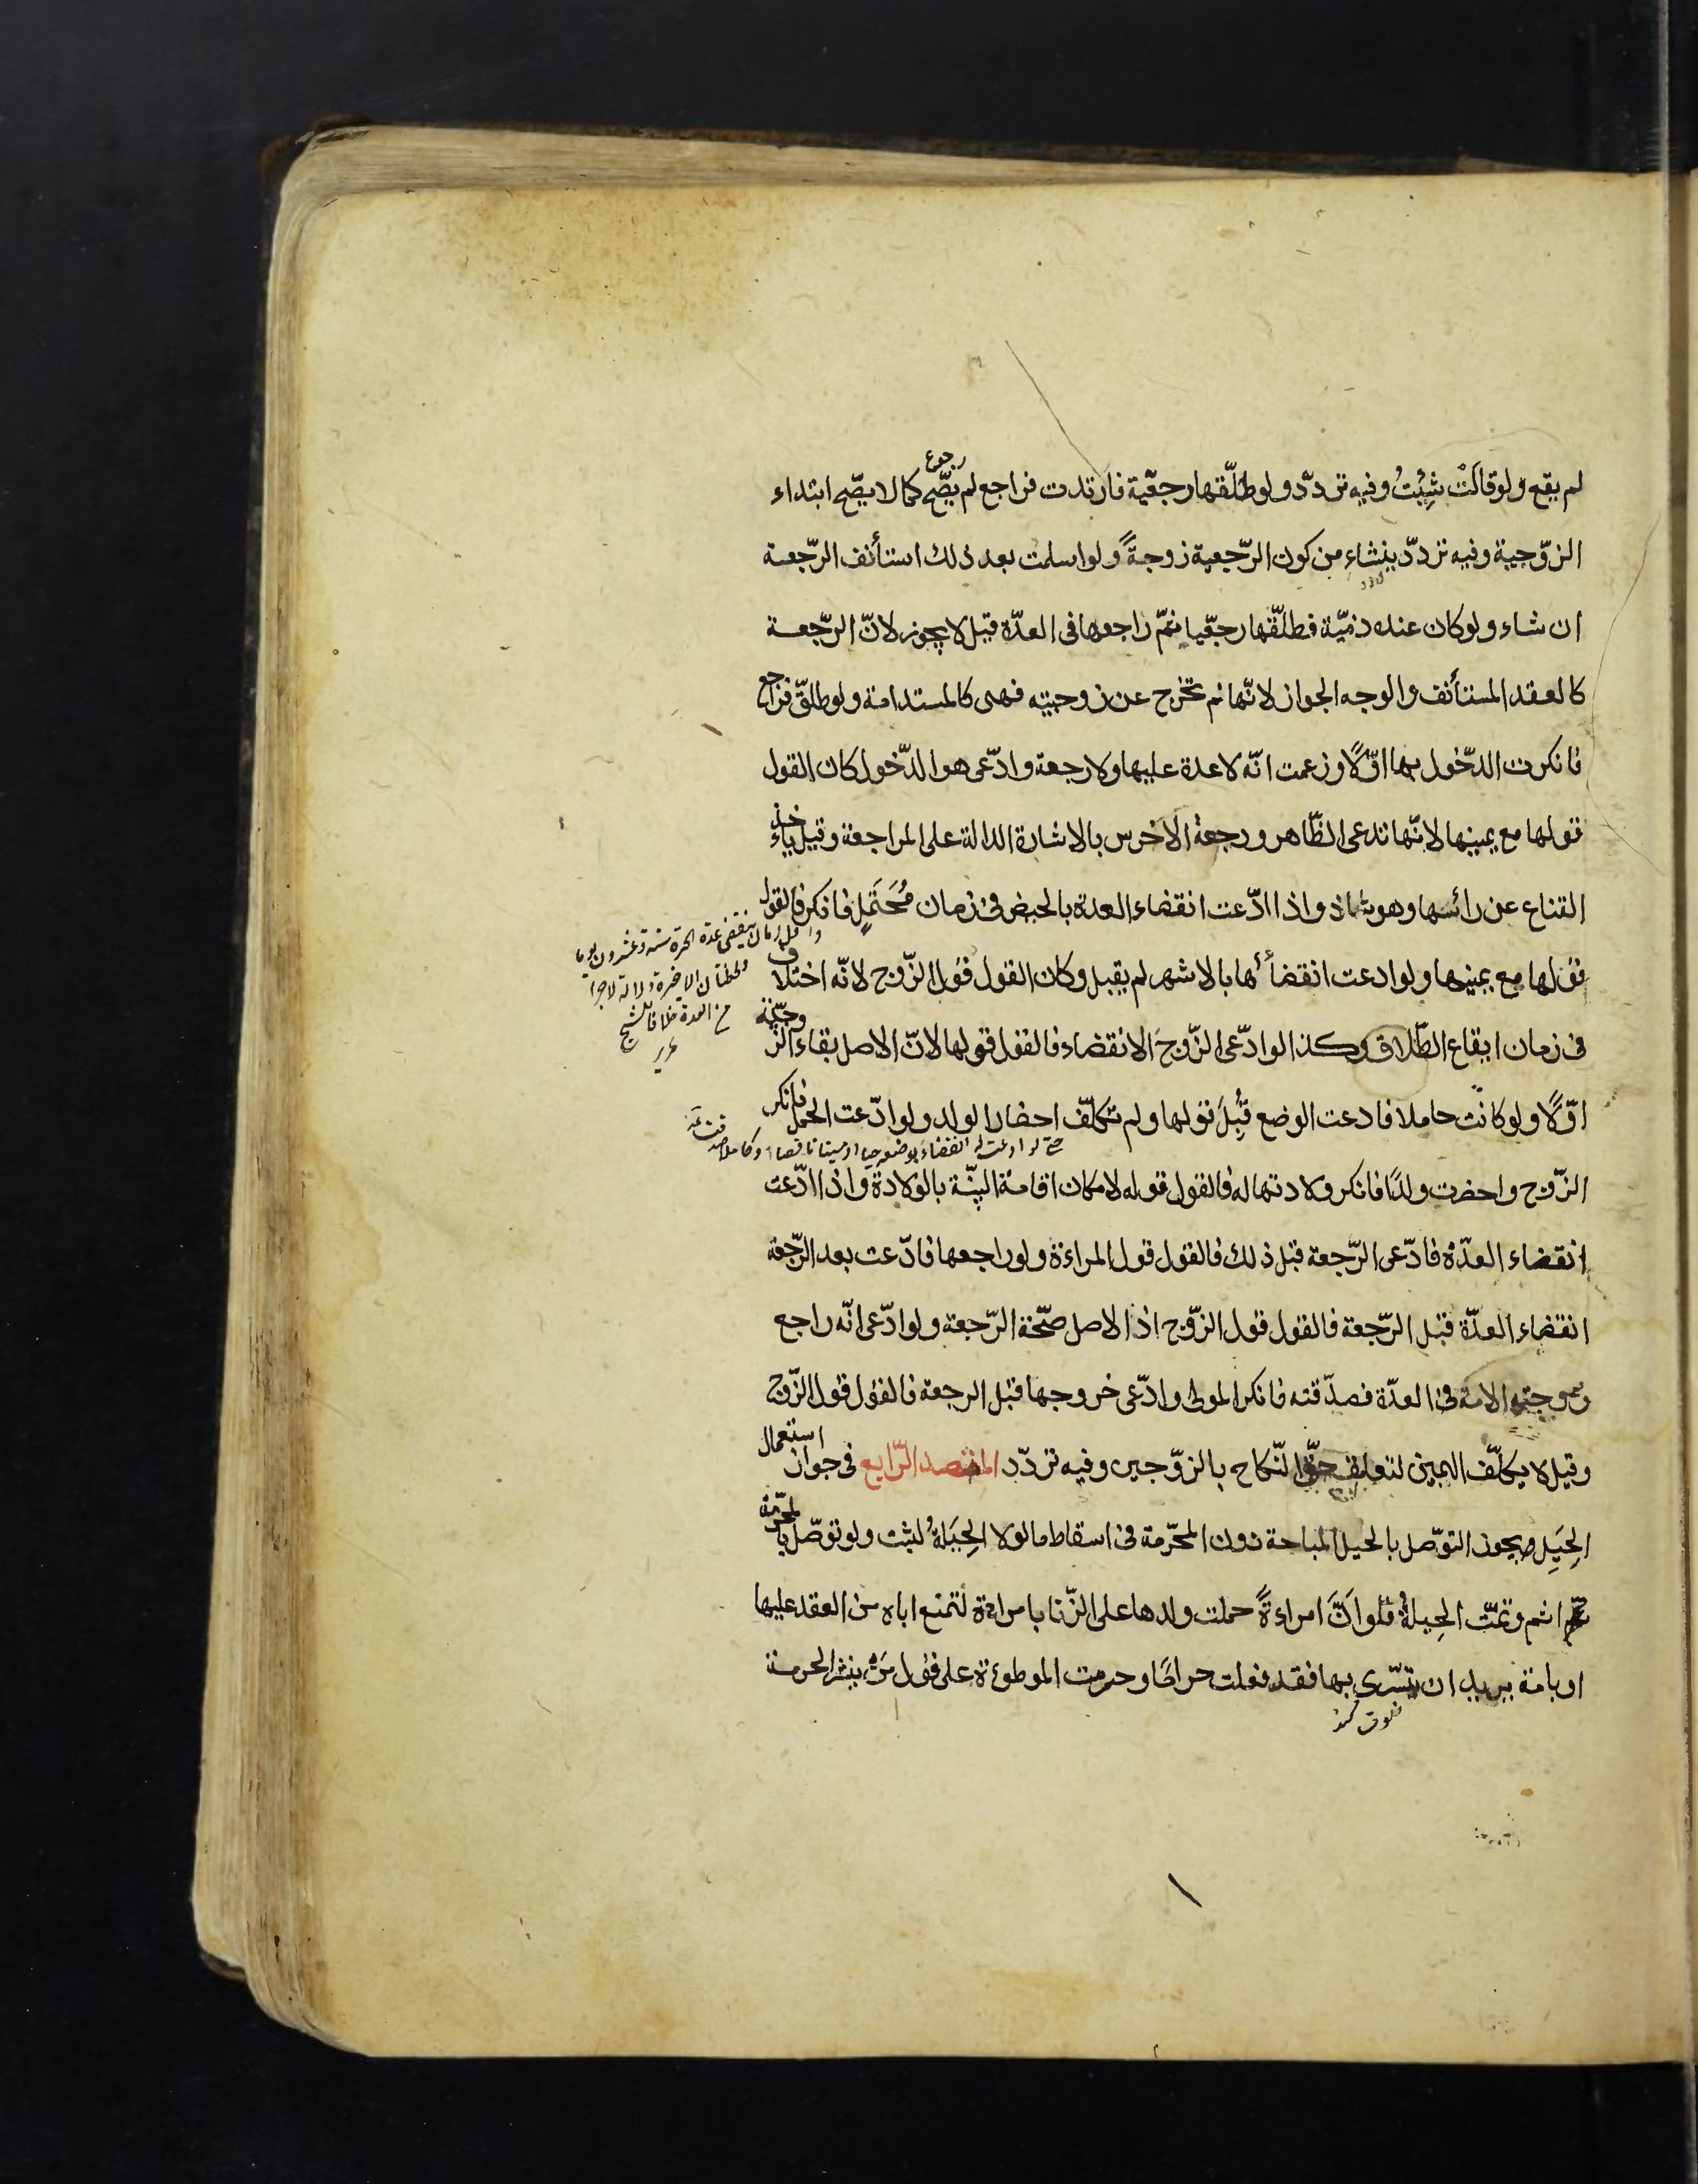 لم يقع ولو قالَتْ شِئْتُ وفيه تردّد ولو طلّقها رجعّية فارتدت فراجع لم يصّح رجوع كما لا يصّح ابتداء
الزوّجية وفيه تردّد ينشاء من كون الرّجعية زوجةً ولو اسلمت بعد ذلك استأنف الرّجعة
ان شاء ولو كان عنده ذميّة فطلّقها رجعّيا ثمّ راجعها فى العدّة قيل لا يجوز لانّ الرّجعة
كالعقد المستأنف والوجه الجواز لانّها لم تخرج عن زوجيته فهى كالمستدامة ولو طلقّ فراجع
فانكرت الدّخول بها اوّلًا وزعمت انّه لا عدة عليها ولا رجعة وادّعى هو الدّخول كان القول
قولها مع يمينها لانّها تدعى الظّاهر ورجعة الاخرس بالاشارة الدالة على المراجعة وقيل ياءخذ
القناع عن رائسها وهو شاذ واذا ادّعت انقضاء العدة بالحيض فى زمان مُحَتَمِلٍ فانكر فالقول
واقل زمان ينقضى عدة الحرة ستة وعشرون يوما
ولحظتان الاخيرة دلالة لا جزا
من العدة خلافا للشيخ
قولها مع يمينها ولو ادعت انقضائها بالاشهر لم يقبل وكان القول قول الزّوج لانّه اختلاف
فى زمان ايقاع الطّلاق وكذا لو ادّعى الزّوج الانقضاء فالقول قولها لانّ الاصل بقاء الزّوجيّة
اوّلًا ولو كانت حاملا فادعت الوضع قُبِلَ قولها ولم تكلّف احضار الولد ولو ادّعت الحمل فانكر
الزّوج واحضرت ولدًا فانكر ولادتها له فالقول قوله لامكان اقامة البيّنة بالولادة واذا ادّعت
انقضاء العدّة فادّعى الرّجعة قبل ذلك فالقول قول المراءة ولو راجعها فادّعت بعد الرّجعة
انقضاء العدّة قبل الرّجعة فالقول قول الزّوج اذ الاصل صحّة الرّجعة ولو ادّعى انّه راجع
زوجته الامة فى العدّة فصدّقته فانكر المولى وادّعى خروجها قبل الرجعة فالقول قول الزّوج
وقيل لا يكلّف اليمين لتعلق حقّ النّكاح بالزوّجين وفيه تردّد المقصد الرّابع فى جواز استعمال
الحِيَلِ ويجوز التوّصل بالحيل المباحة دون المحرّمة فى اسقاط ما لولا الحِيَلةُ لثبت ولو توصّل بالمحرّمة
اثم وتمّت الحِيلةُ فلو انَّ امراءةً حملت ولدها على الزّنا بامراءة لتمنع اباه من العقد عليها
او بامة يريد ان يتسّرى بها فقد فعلت حراما وحرمت الموطوءة على قول مَنْ ينشر الحرمة